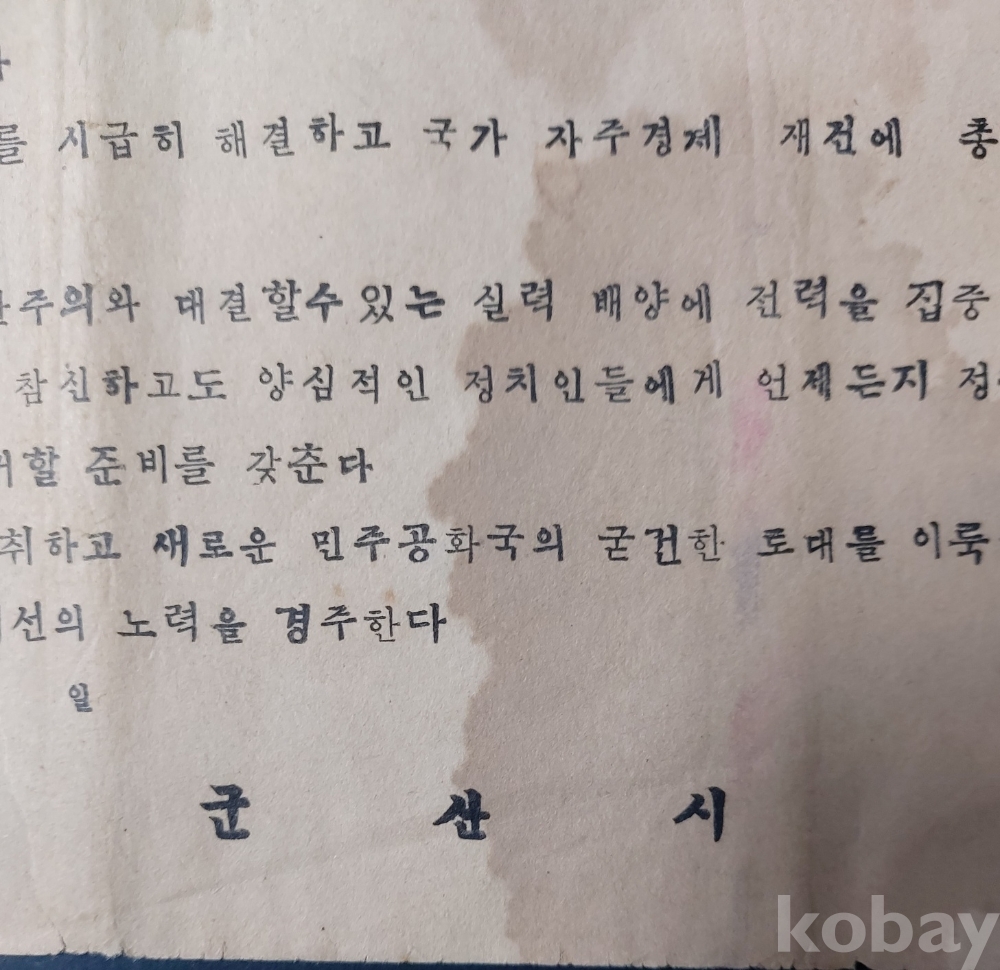 를 시급히 해결하고 국가 자주경제 재건에 총
주의와 대결할수 있는 실력 배양에 전력을 집중
참신하고도 양심적인 정치인들에게 언제든지
할 준비를 갖춘다
취하고 새로운 민주공화국의 굳건한 토대를 이룩
선의 노력을 경주한다
일
군 산 시
kobay